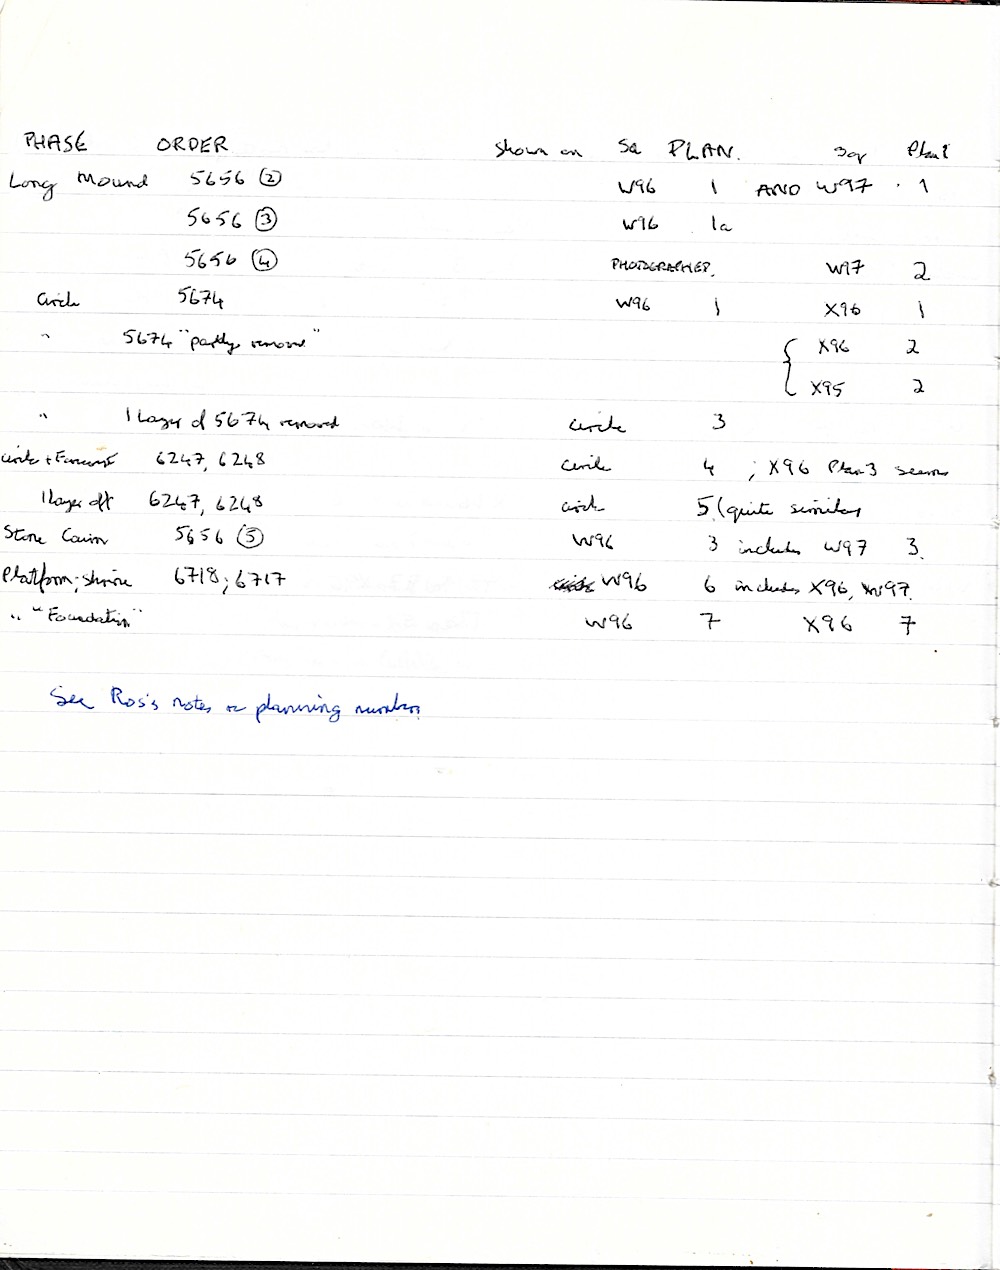 PHASE ORDER shown on Sq PLAN. Sqr Plan?
Long Mound 5656 ② W96 1 AND W97 . 1
5656 ③ W96 1a
5656 ④ PHOTOGRAPHED. W97 2
Circle 5674 W96 1 X96 1
" 5674 "partly removed" { X96 2
X95 2
" 1 layer of 5674 removed circle 3
circle + 6247, 6248 circle 4 ; X96 Plan 3 seems
1 layer off 6247, 6248 circle 5 (quite similar
Stone Cairn 5656 ⑤ W96 3 includes W97 3.
Platform; shrine 6718; 6717 W96 6 includes X96, W97.
" "Foundation" W96 7 X96 7
See Ros's notes on planning numbers